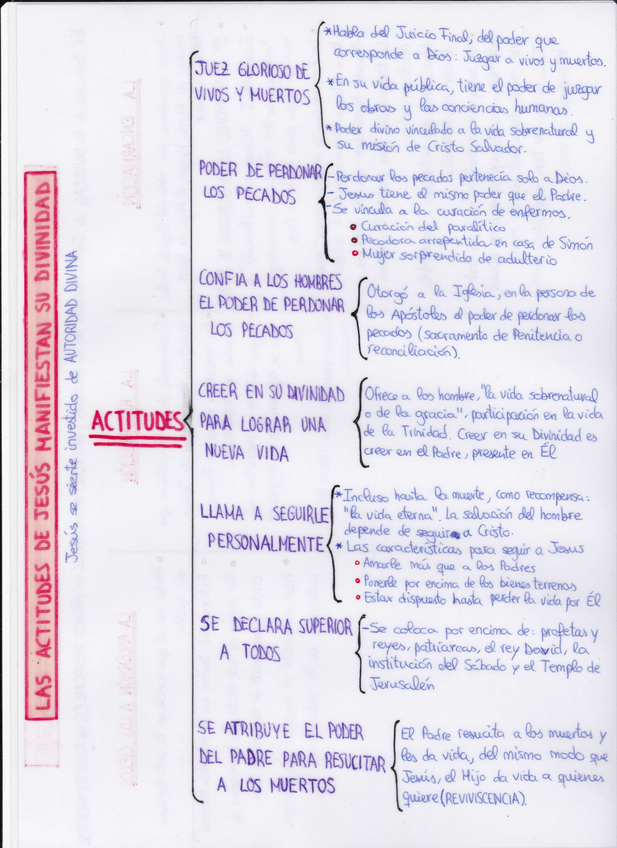 LAS ACTITUDES DE JESÚS MANIFIESTAN SU DIVINIDAD
Jesús se siente investido de AUTORIDAD DIVINA
ACTITUDES
JUEZ GLORIOSO DE
VIVOS Y MUERTOS
* Habla del Juicio Final, del poder que
corresponde a Dios: Juzgar a vivos y muertos.
* En su vida pública, tiene el poder de juzgar
las obras y las conciencias humanas.
* Poder divino vinculado a la vida sobrenatural y
su misión de Cristo Salvador.
PODER DE PERDONAR
LOS PECADOS
- Perdonar los pecados pertenecía solo a Dios.
- Jesus tiene el mismo poder que el Padre.
- Se vincula a la curación de enfermos.
• Curación del paralítico
• Pecadora arrepentida en casa de Simón
• Mujer sorprendida de adulterio
CONFIA A LOS HOMBRES
EL PODER DE PERDONAR
LOS PECADOS
Otorgó a la Iglesia, en la persona de
los Apóstoles el poder de perdonar los
pecados (sacramento de Penitencia o
reconciliación).
CREER EN SU DIVINIDAD
PARA LOGRAR UNA
NUEVA VIDA
Ofrece a los hombre, "la vida sobrenatural
o de la gracia", participación en la vida
de la Trinidad. Creer en su Divinidad es
creer en el Padre, presente en Él
LLAMA A SEGUIRLE
PERSONALMENTE
* Incluso hasta la muerte, como recompensa:
"la vida eterna". La salvación del hombre
depende de seguir a Cristo.
* Las características para seguir a Jesus
• Amarle más que a los Padres
• Ponerle por encima de los bienes terrenos
• Estar dispuesto hasta perder la vida por Él
SE DECLARA SUPERIOR
A TODOS
- Se coloca por encima de: profetas y
reyes, patriarcas, el rey David, la
institución del Sábado y el Templo de
Jerusalén
SE ATRIBUYE EL PODER
DEL PADRE PARA RESUCITAR
A LOS MUERTOS
El Padre resucita a los muertos y
les da vida, del mismo modo que
Jesús, el Hijo da vida a quienes
quiere (REVIVISCENCIA).